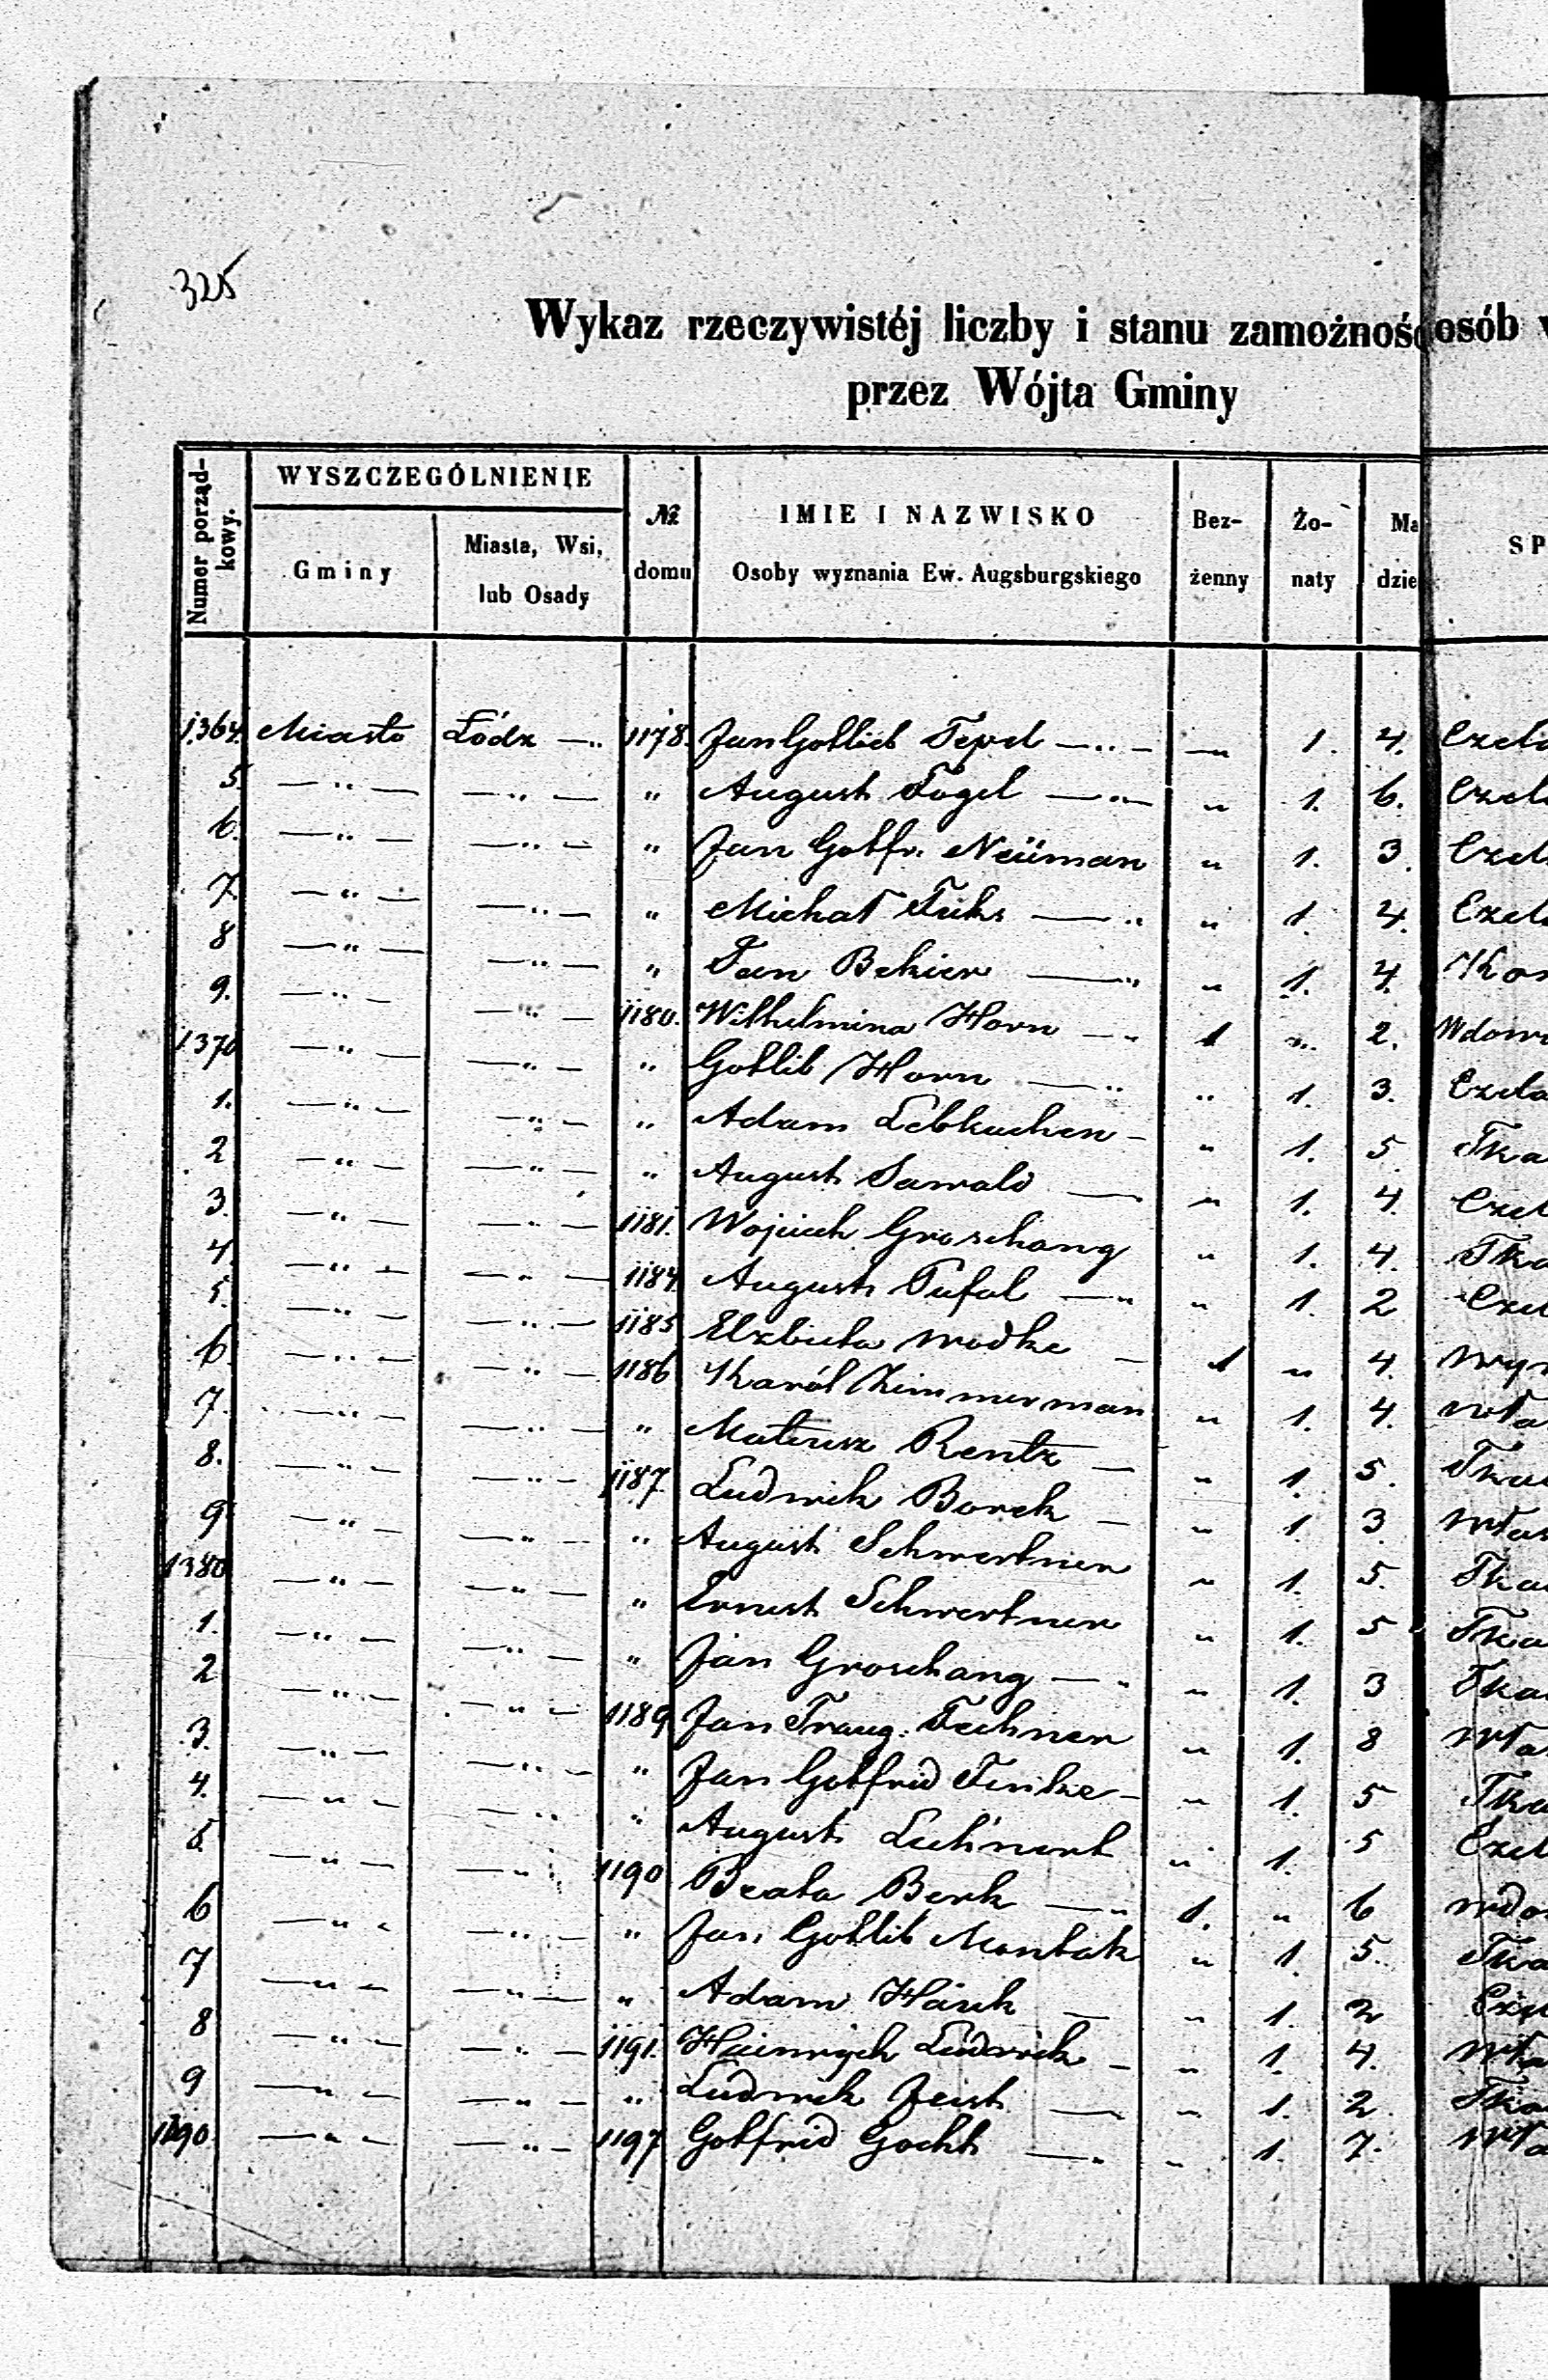 325
Wykaz rzeczywistéj liczby i stanu zamożnoś osób
przez Wójta Gminy
Numer porządkowy.
WYSZCZEGÓLNIENIE
Gminy
Miasta, Wsi, lub Osady
№ domu
IMIE I NAZWISKO
Osoby wyznania Ew. Augsburgskiego
Bez-żenny
Żo-naty
Ma dzie
SP
1364. Miasto Łódz —„ 1178. Jan Gottlieb Tepel —„— —„ 1. 4. Czela
5. —„— —„— „ August Fogel —„— „ 1. 6. Czela
6. —„— —„— „ Jan Gotfr. Neüman „ 1. 3. Czel
7. —„— —„— „ Michał Fuks —„ „ 1. 4. Czel
8 —„— —„— „ Jan Bekier —„ „ 1. 4. Kom
9. —„— —„— 1180. Wilhelmina Horn —„ 1 „ 2. Wdow
1370 —„— —„— „ Gotlib Horn —„ „ 1. 3. Czela
1. —„— —„— „ Adam Lebkuchen — „ 1. 5. Tka
2 —„— —„— „ August Sawald — „ 1. 4. Czel
3. —„— —„— 1181. Wojciech Groschang „ 1. 4. Tka
4. —„— —„— 1184. August Pufal —„ „ 1. 2 Czel
5. —„— —„— 1185 Elzbieta Wodke — 1 „ 4. Wyr
6. —„— —„— 1186 Karól Zimmerman „ 1. 4. Wła
7. —„— —„— „ Mateusz Rentz — „ 1. 5. Tka
8. —„— —„— 1187 Ludwik Borek — „ 1. 3. Włas
9 —„— —„— „ August Schwertner „ 1. 5. Tka
1380 —„— —„— „ Ernest Schwertner „ 1. 5 Tka
1. —„— —„— „ Jan Groschang —„ „ 1. 3 Tka
2 —„— —„— 1189 Jan Traug. Fechner „ 1. 8 Wła
3. —„— —„— „ Jan Gotfried Finke — „ 1. 5 Tka
4. —„— —„ „ August Lechnert „ 1. 5 Czel
5. —„— —„ 1190 Beata Berk —„ 1. „ 6 Wdo
6 —„— —„— „ Jan Gotlib Mantak „ 1. 5. Tka
7 —„— —„— „ Adam Hauk — „ 1. 2
8 —„— —„— 1191. Heinrych Ludwik — „ 1. 4. Wła
9 —„— —„— „ Ludwik Zeist — „ 1. 2. Tka
1390 —„— —„— 1197 Gotfrid Gocht —„ „ 1. 7. Wła